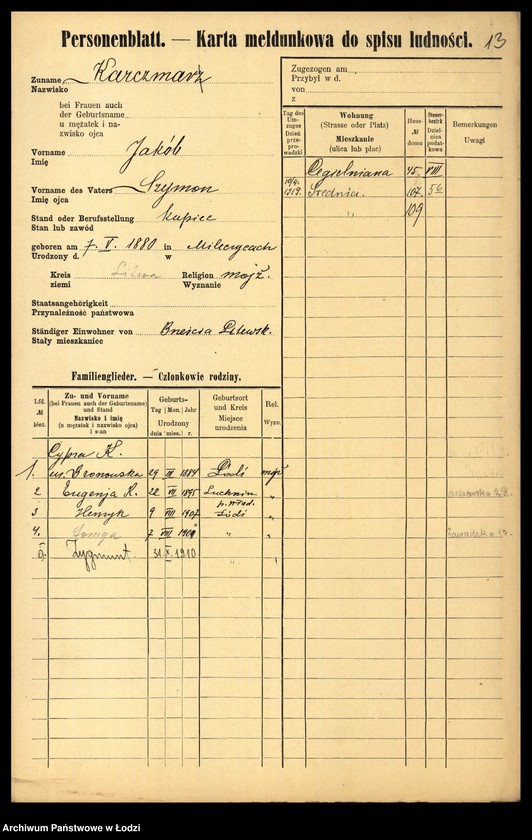 Personenblatt. — Karta meldunkowa do spisu ludności. 13
Zuname Karczmarz
Nazwisko
bei Frauen auch
der Geburtsname
u mężatek i na-
zwisko ojca
Vorname Jakób
Imię
Vorname des Vaters Szymon
Imię ojca
Stand oder Berufsstellung kupiec
Stan lub zawód
geboren am 7. V. 1880 in Milecycach
Urodzony d. w
Kreis Litwa Religion mojż.
ziemi Wyznanie
Staatsangehörigkeit
Przynależność państwowa
Ständiger Einwohner von Brześcia Litewsk.
Stały mieszkaniec
Zugezogen am
Przybył w d.
von
z
Tag des Um-zuges Dzień prze-pro-wadzki
Wohnung (Strasse oder Platz) Mieszkanie (ulica lub plac)
Haus- № domu
Steuer-bezirk Dziel-nica podat-kowa
Bemerkungen Uwagi
Cegielniana 45. VIII
19/4. 1919. Średnia. 107. 56
" 109
Familienglieder. — Członkowie rodziny.
Lfd. № bież.
Zu- und Vorname (bei Frauen auch der Geburtsname) und Stand Nazwisko i imię (u mężatek i nazwisko ojca) i stan
Geburts- Tag Mon. Jahr Urodzony dnia mies. r.
Geburtsort und Kreis Miejsce urodzenia
Rel. Wyzn.
Cypra K.
1. ur. Bronowska 29 III 1884 Łódź mojż
2 Eugenja R. 22 VI 1895 "
3 Henryk 9 VIII 1907 Łódź "
4. 7 VIII 1909 " "
5. Zygmunt. 31 X 1910 "
Zawadzka 17.
Archiwum Państwowe w Łodzi